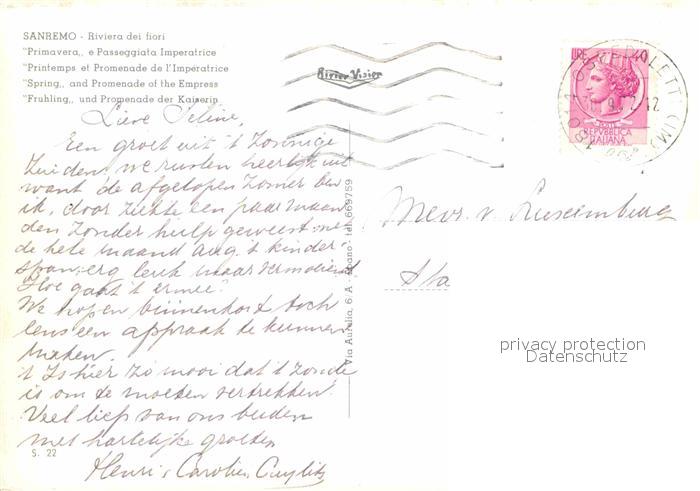 SANREMO - Riviera dei fiori
"Primavera,, e Passeggiata Imperatrice
"Printemps et Promenade de l'Impératrice
"Spring,, and Promenade of the Empress
"Fruhling,, und Promenade der Kaiserin
Lieve Seline,
Een groet uit 't Zonnige
Zuiden, we rusten heerlijk uit
want de afgelopen zomer ben
ik, door ziekte een paar maan
den zonder hulp geweest met
de hele maand aug. 't kinder-
span, erg leuk maar vermoeiend
Hoe gaat 't ermee?
We hopen binnenkort toch
eens een afspraak te kunnen
maken.
't Is hier zo mooi dat 't zonde
is om te moeten vertrekken.
Veel liefs van ons beiden
met hartelijke groeten
S. 22
Henri
Via Aurelia, 6 A - tel. 669759
LIRE 40
POSTE
REPVBBLICA
ITALIANA
OSPEDALETTI (IM)
Mevr. v. Luxemburg
privacy protection
Datenschutz